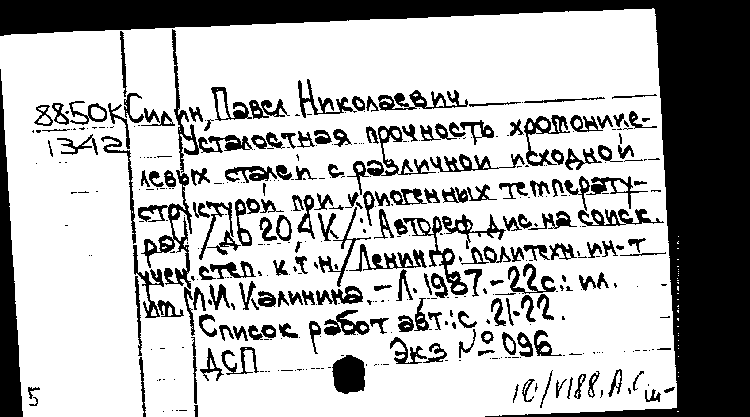 88.50К Силин, Павел Николаевич.
1342 Усталостная прочность хромонике-
левых сталей с различной исходной
структурой при криогенных температу-
рах /до 20,4 К/: Автореф. дис. на соиск.
учен. степ. к.т.н./Ленингр. политехн. ин-т
им. М.И. Калинина. – Л., 1987. – 22 с.: ил.
Список работ авт.: с. 21-22.
ДСП Экз № 096
5 10/VI 88. А.С.